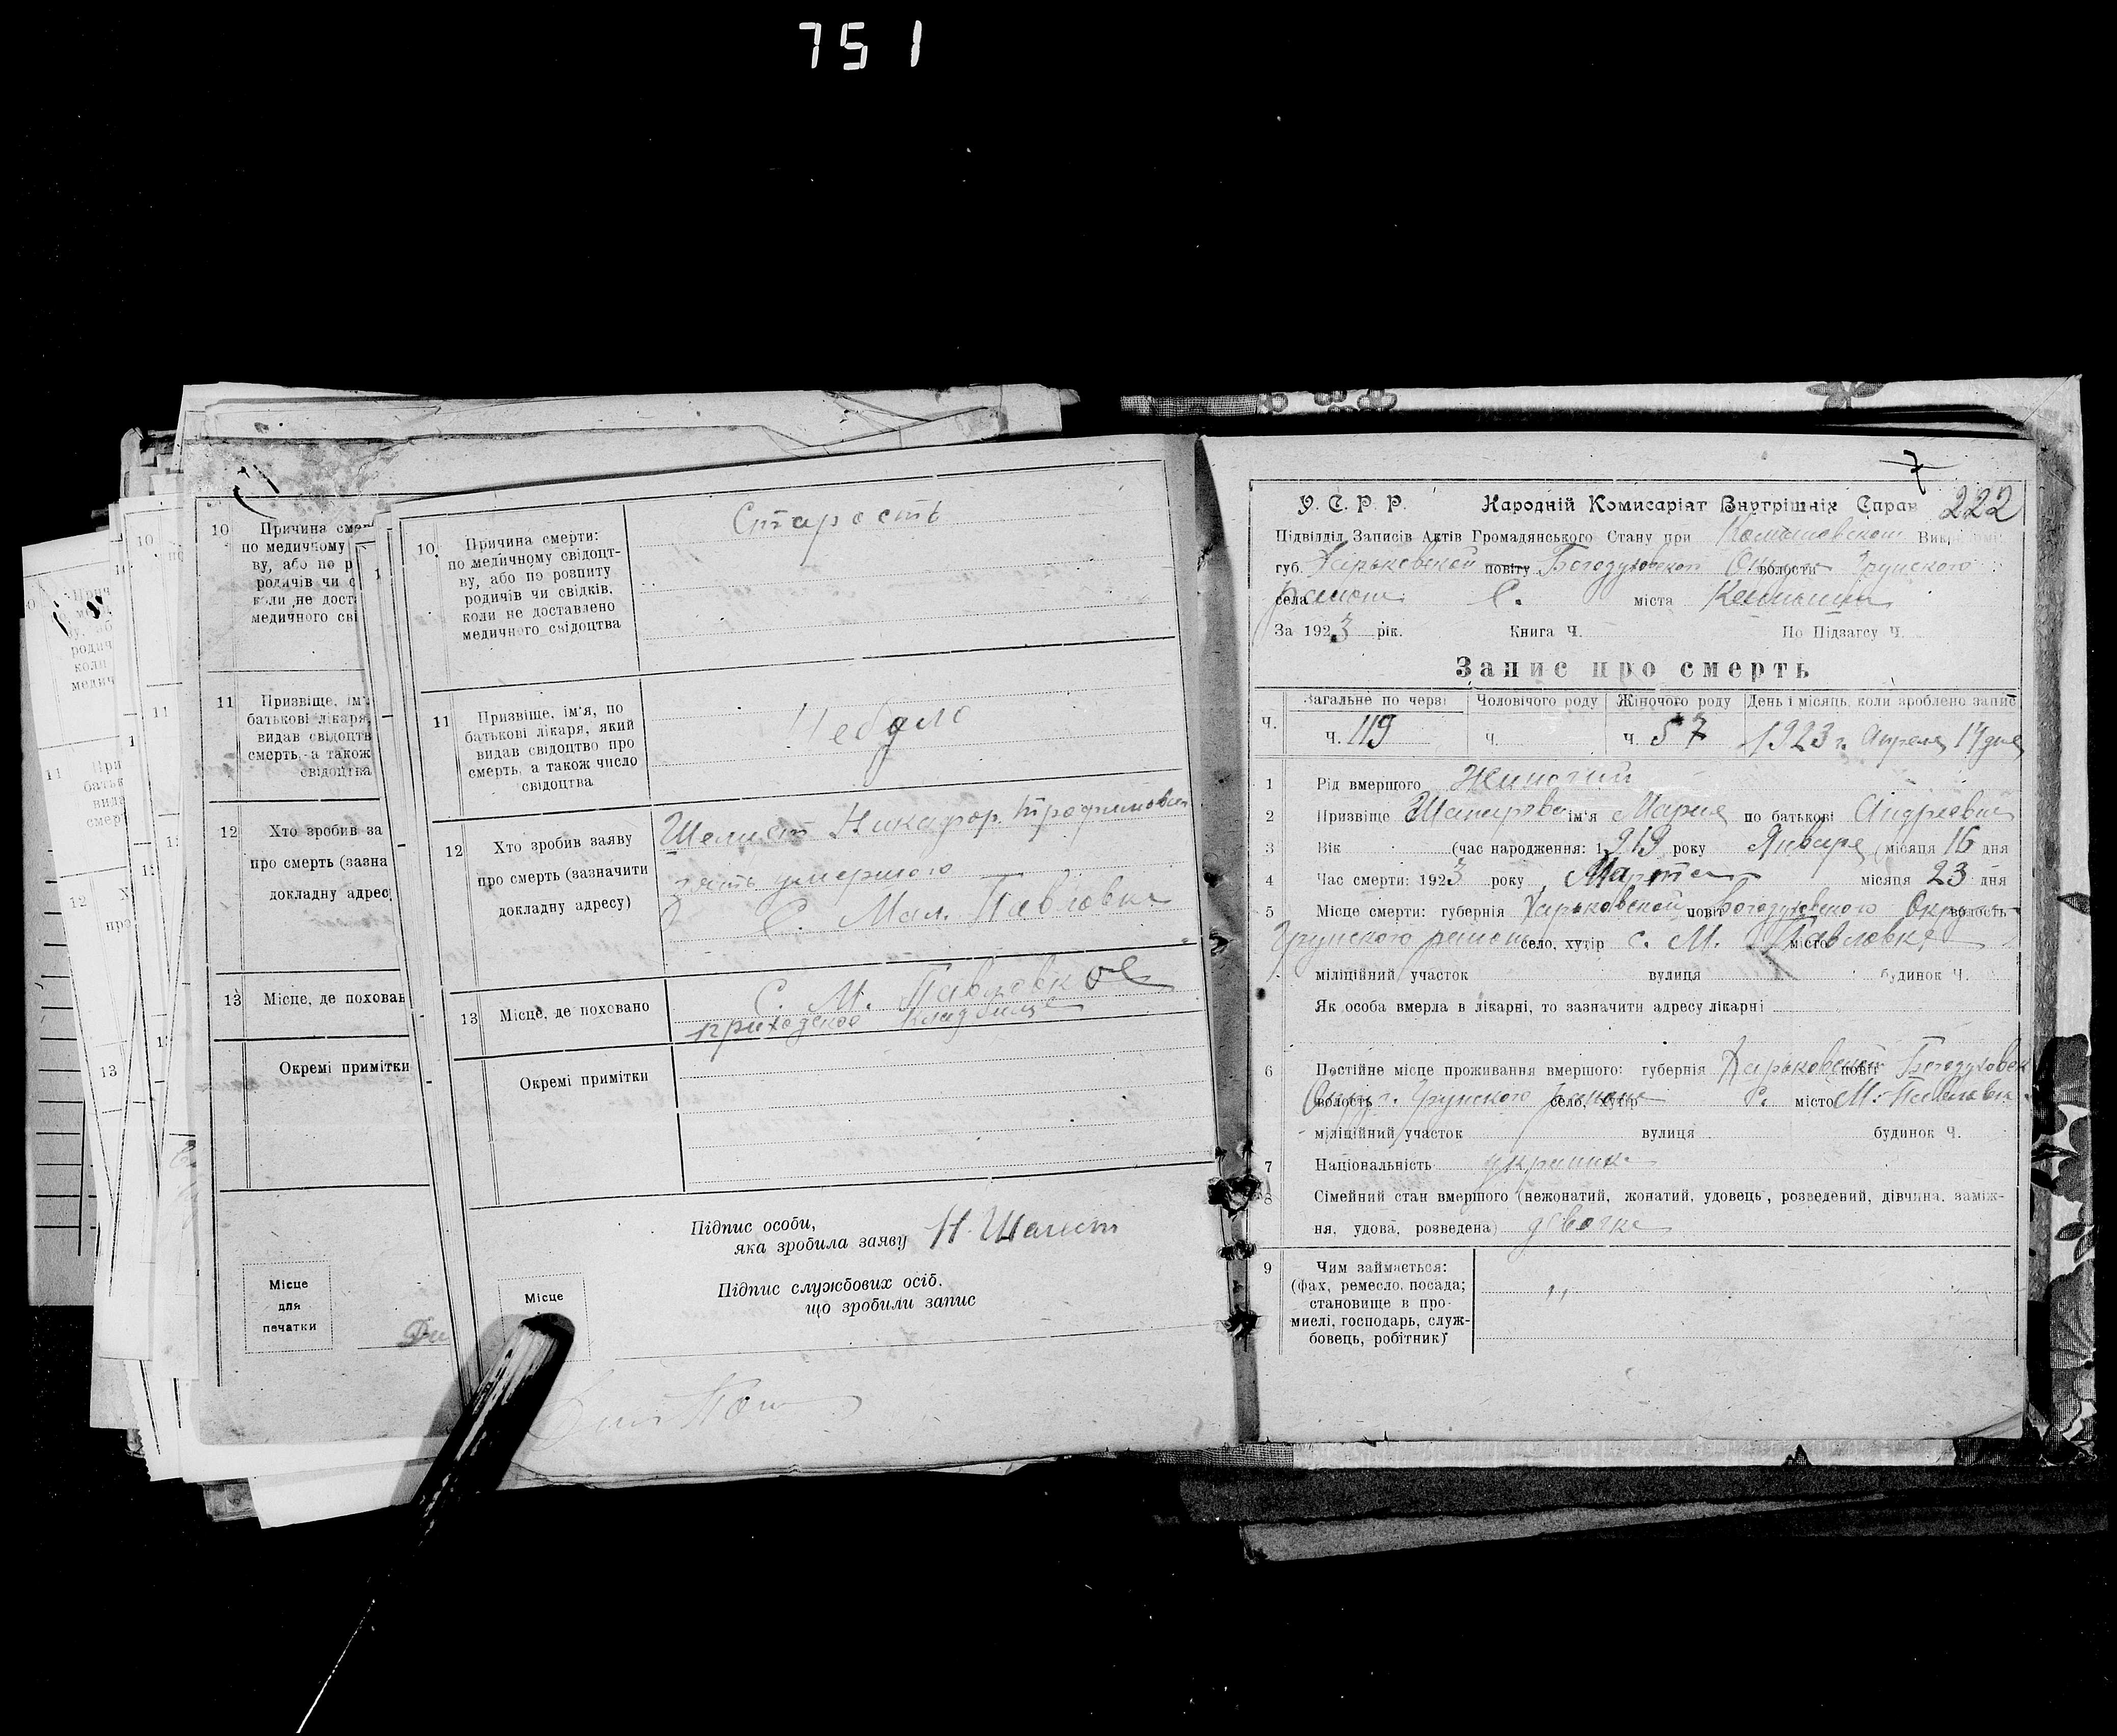 751
10
Причина смерти:
по медичному свідоцт-
ву, або по розпиту
родичів чи свідків,
коли не доставлено
медичного свідоцтва
Старость
11
Призвіще, ім'я, по
батькові лікаря, який
видав свідоцтво про
смерть, а також число
свідоцтва
Небыло
12
Хто зробив заяву
про смерть (зазначити
докладну адресу)
Шелест Никифор Трофимович
зять умершого
С. Мал. Павловка
13
Місце, де поховано
С. М. Павловкое
приходское кладбище
Окремі примітки
Підпис особи,
яка зробила заяву Н. Шелест
Підпис службових осіб,
що зробили запис
Місце
10
Причина смер
по медичному
11
Призвіще, ім'
батькові лікаря,
видав свідоцтв
смерть, а також
свідоцтва
12
Хто зробив за
про смерть (зазна
докладну адрес
13
Місце, де похован
Окремі примітки
Місце
для
печатки
7
222
У. С. Р. Р. Народній Комисаріят Внутрішніх Справ
Підвідділ Записів Актів Громадянського Стану при
губ. Харьковской повіту Богодуховской волости Грунского
села района С. міста
За 1923 рік. Книга Ч. По Підзагсу Ч.
Запис про смерть
Загальне по черзі Чоловічого роду Жіночого роду День і місяць, коли зроблено запис
Ч. Ч. 119 Ч. Ч. 57 1923 г. Апреля 17 дня
1 Рід вмершого Женский
2 Призвіще ім'я Мария по батькові Андреевна
3 Вік (час народження: 1919 року Января місяця 16 дня
4 Час смерти: 1923 року Марта місяця 23 дня
5 Місце смерти: губернія Харьковской повіт Богодуховского Округа волость
Грунского района село, хутір с. М. Павловка місто
міліційний участок вулиця будинок Ч.
Як особа вмерла в лікарні, то зазначити адресу лікарні
6 Постійне місце проживання вмершого: губернія Харьковской повіт Богодуховск
Округ. волость Грунского района село, хутір С. місто М. Павловка
міліційний участок вулиця будинок Ч.
7 Національність украинка
8 Сімейний стан вмершого (нежонатий, жонатий, удовець, розведений, дівчина, заміж-
ня, удова, розведена) девочка
9 Чим займається:
(фах, ремесло, посада;
становище в про-
мислі, господарь, служ-
бовець, робітник)